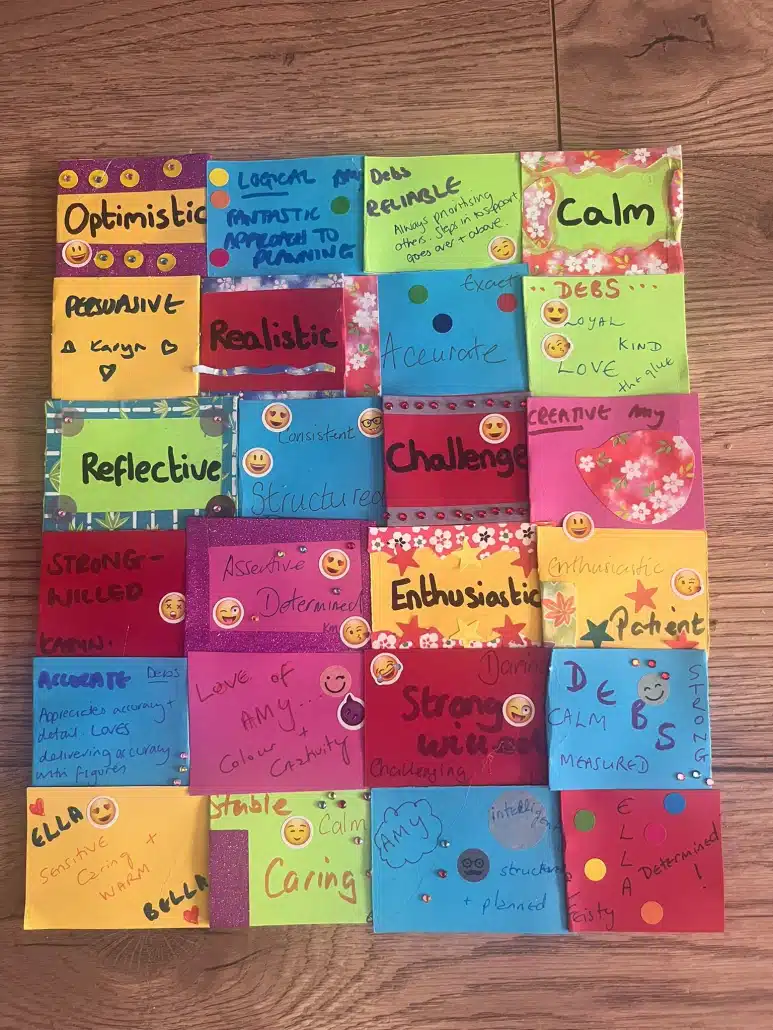 Optimistic
LOGICAL AMY
FANTASTIC
APPROACH TO
PLANNING
Debs
RELIABLE
Always prioritising
others. Steps in to support
Goes over + above.
Calm
PERSUASIVE
Karyn
Realistic
Exact
Accurate
DEBS
LOYAL
KIND
LOVE
the glue
Reflective
Consistent
Structured
Challenge
CREATIVE Amy
STRONG-
WILLED
KARYN.
Assertive
Determined
Km
Enthusiastic
Enthusiastic
Patient
ACCURATE Debs
Appreciates accuracy +
detail. LOVES
delivering accuracy
with figures
LOVE OF
AMY...
Colour +
Creativity
Daring
Strong
willed
Challenging
DEBS
STRONG
CALM
MEASURED
ELLA
SENSITIVE
Caring +
WARM
BELLA
Stable
Calm
Caring
AMY
intelligent
structured
+ planned
ELLA
Determined
!
Feisty